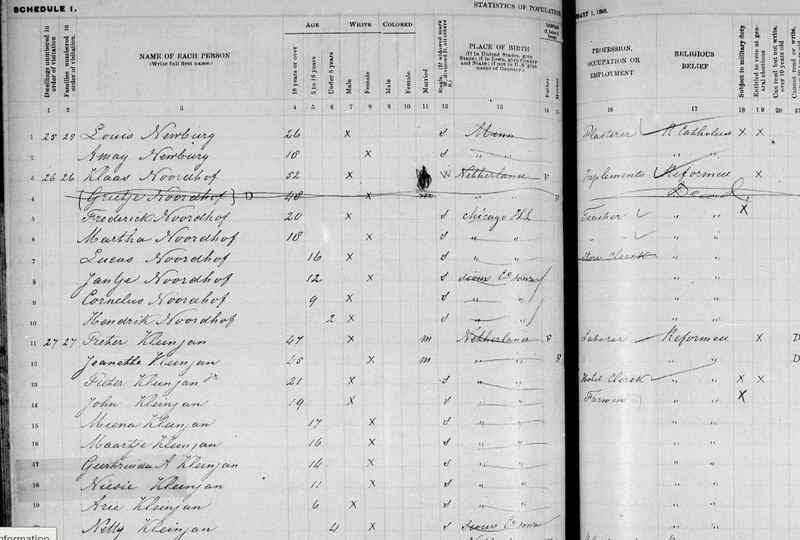 SCHEDULE 1.
STATISTICS OF POPULATION
UARY 1, 1895.
Dwellings numbered in order of visitation
Families numbered in order of visitation.
NAME OF EACH PERSON
(Write full first name.)
AGE
18 years or over
5 to 18 years
Under 5 years
WHITE
Male
Female
COLORED
Male
Female
Married
PLACE OF BIRTH
(If in United States, give State; if in Iowa, give County and State; if not in U. S. give name of Country.)
Father
Mother
PROFESSION, OCCUPATION OR EMPLOYMENT
RELIGIOUS BELIEF
Subject to military duty
Entitled to vote at general elections
Can read but not write, over 10 years old
1 2 3 4 5 6 7 8 9 10 11 12 13 14 15 16 17 18 19 20 21
1 25 25 Louis Newburg 26 X S Minn Plasterer R Catholic X X
2 Amay Newburg 18 X S " " " "
3 26 26 Klaas Noordhof 52 X W Netherland F Implements Reformed X
4 (Grietje Noordhof) D 48 X m " " F Dead
5 Frederick Noordhof 20 X S Chicago Ill Teacher " " X
6 Martha Noordhof 18 X S " " " " " "
7 Lucas Noordhof 16 X S " " Store Clerk " "
8 Jantje Noordhof 12 X S Sioux Co Iowa " "
9 Cornelus Noordhof 9 X S " " " "
10 Hendrik Noordhof 2 X S " " " "
11 27 27 Pieter Kleinjan 47 X m Netherland F Laborer Reformed X D
12 Jeanette Kleinjan 45 X m " " F " " D
13 Pieter Kleinjan Jr 21 X S " " Hotel Clerk " " X X
14 John Kleinjan 19 X S " " Farmer " " X
15 Miena Kleinjan 17 X S " " " "
16 Maartje Kleinjan 16 X S " " " "
17 A Kleinjan 14 X S " " " "
18 Kleinjan 11 X S " " " "
19 Arie Kleinjan 6 X S " " " "
20 Netty Kleinjan 4 X S Sioux Co Iowa " "
nformation